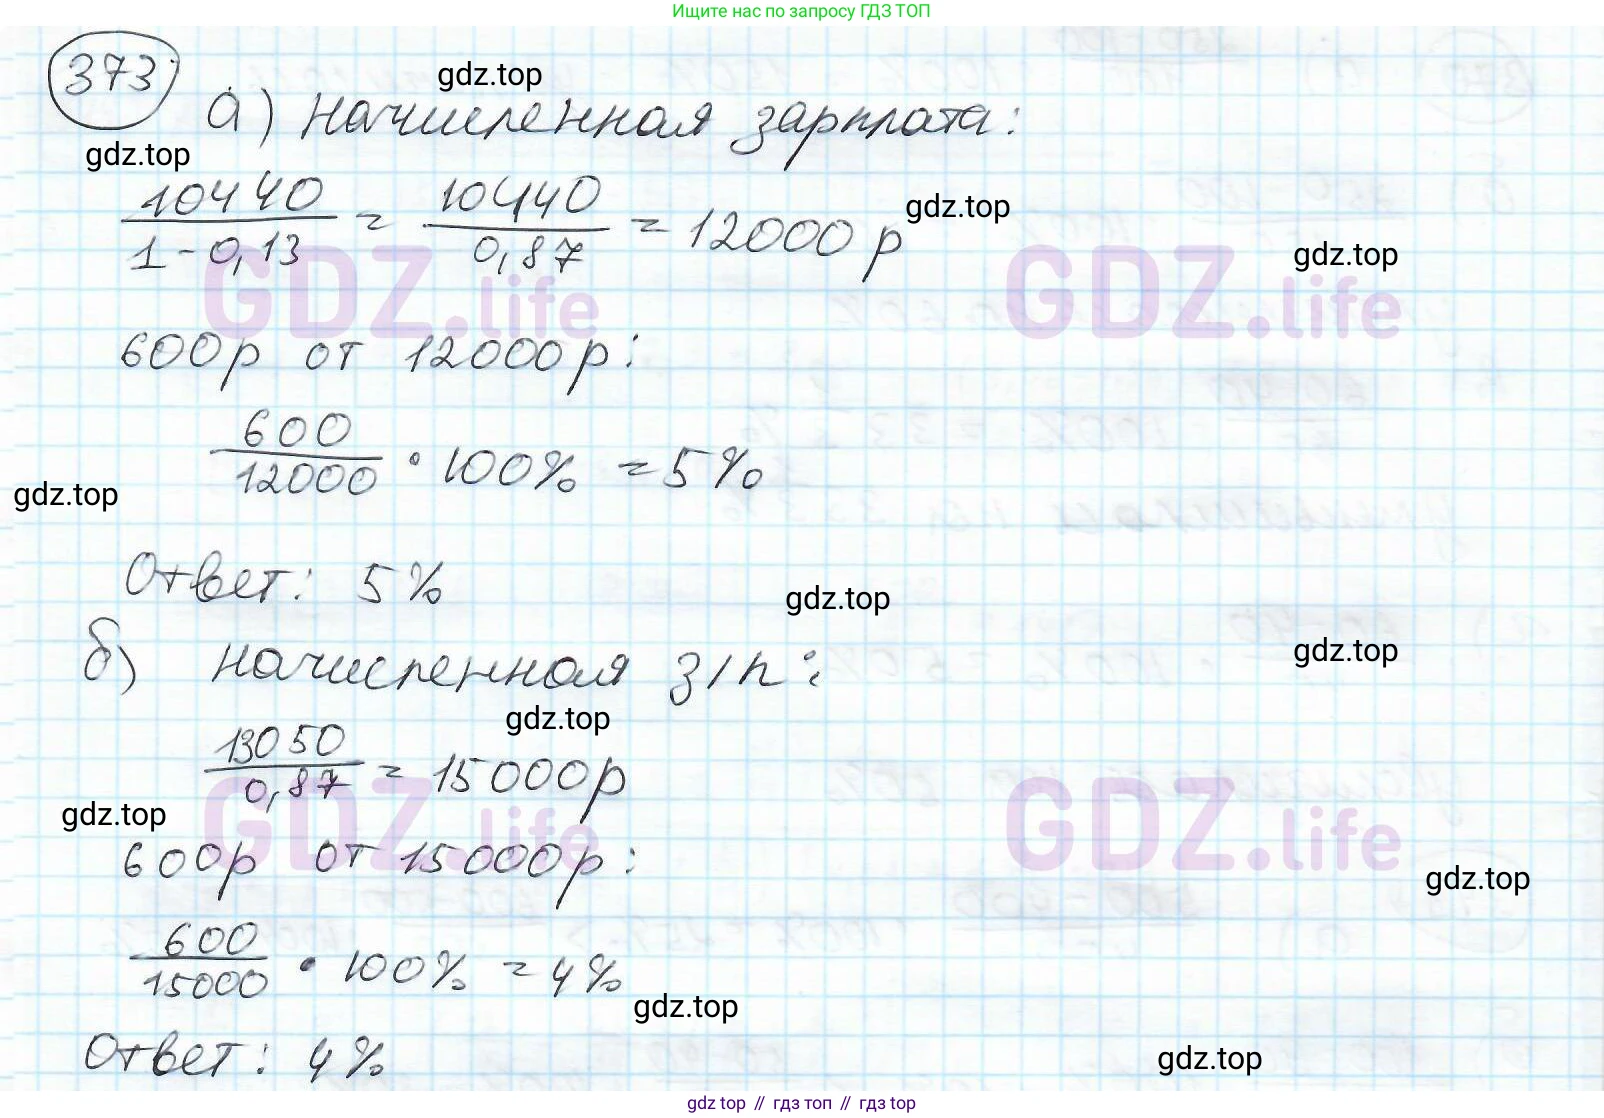 Ищите нас по запросу ГДЗ ТОП
373
gdz.top
а) Начисленная зарплата:
gdz.top
10440/(1-0,13) = 10440/0,87 = 12000 р
gdz.top
gdz.top
GDZ.life
GDZ.life
600р от 12000р:
600/12000 · 100% = 5%
gdz.top
Ответ: 5%
gdz.top
б) Начисленная з/п:
gdz.top
gdz.top
13050/0,87 = 15000р
gdz.top
GDZ.life
GDZ.life
600р от 15000р:
gdz.top
600/15000 · 100% = 4%
gdz.top
Ответ: 4%
gdz.top
gdz.top // гдз топ // гдз top